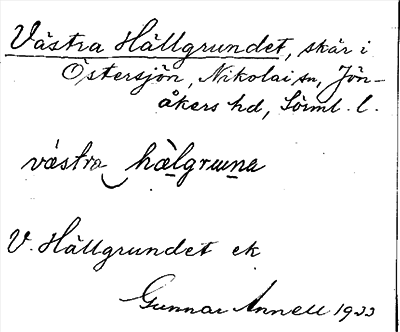 Västra Hällgrundet, skär i
Östersjön, Nikolai sn, Jön-
åkers hd, Sörml. l.
västra hälgruna
V. Hällgrundet ek
Gunnar Annell 1933